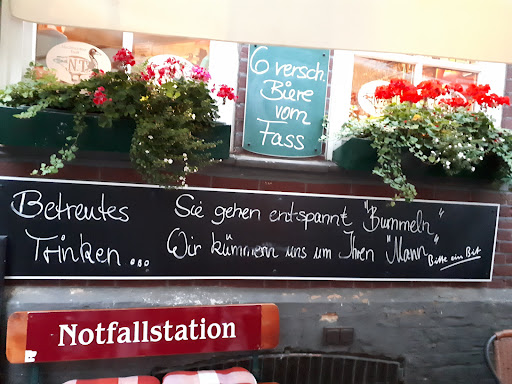 6 versch.
Biere
vom
Fass
Betreutes
Trinken...
Sie gehen entspannt "Bummeln"
Wir kümmern uns um Ihren "Mann"
Bitte ein Bit
Notfallstation